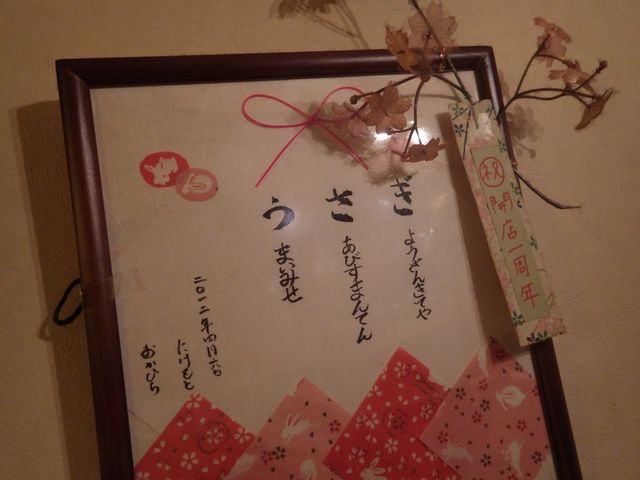 うまいみせ
さあびすまんてん
ぎょうさんきてや
二〇一二年四月六日
たけもと
おかひら
㊗開店一周年